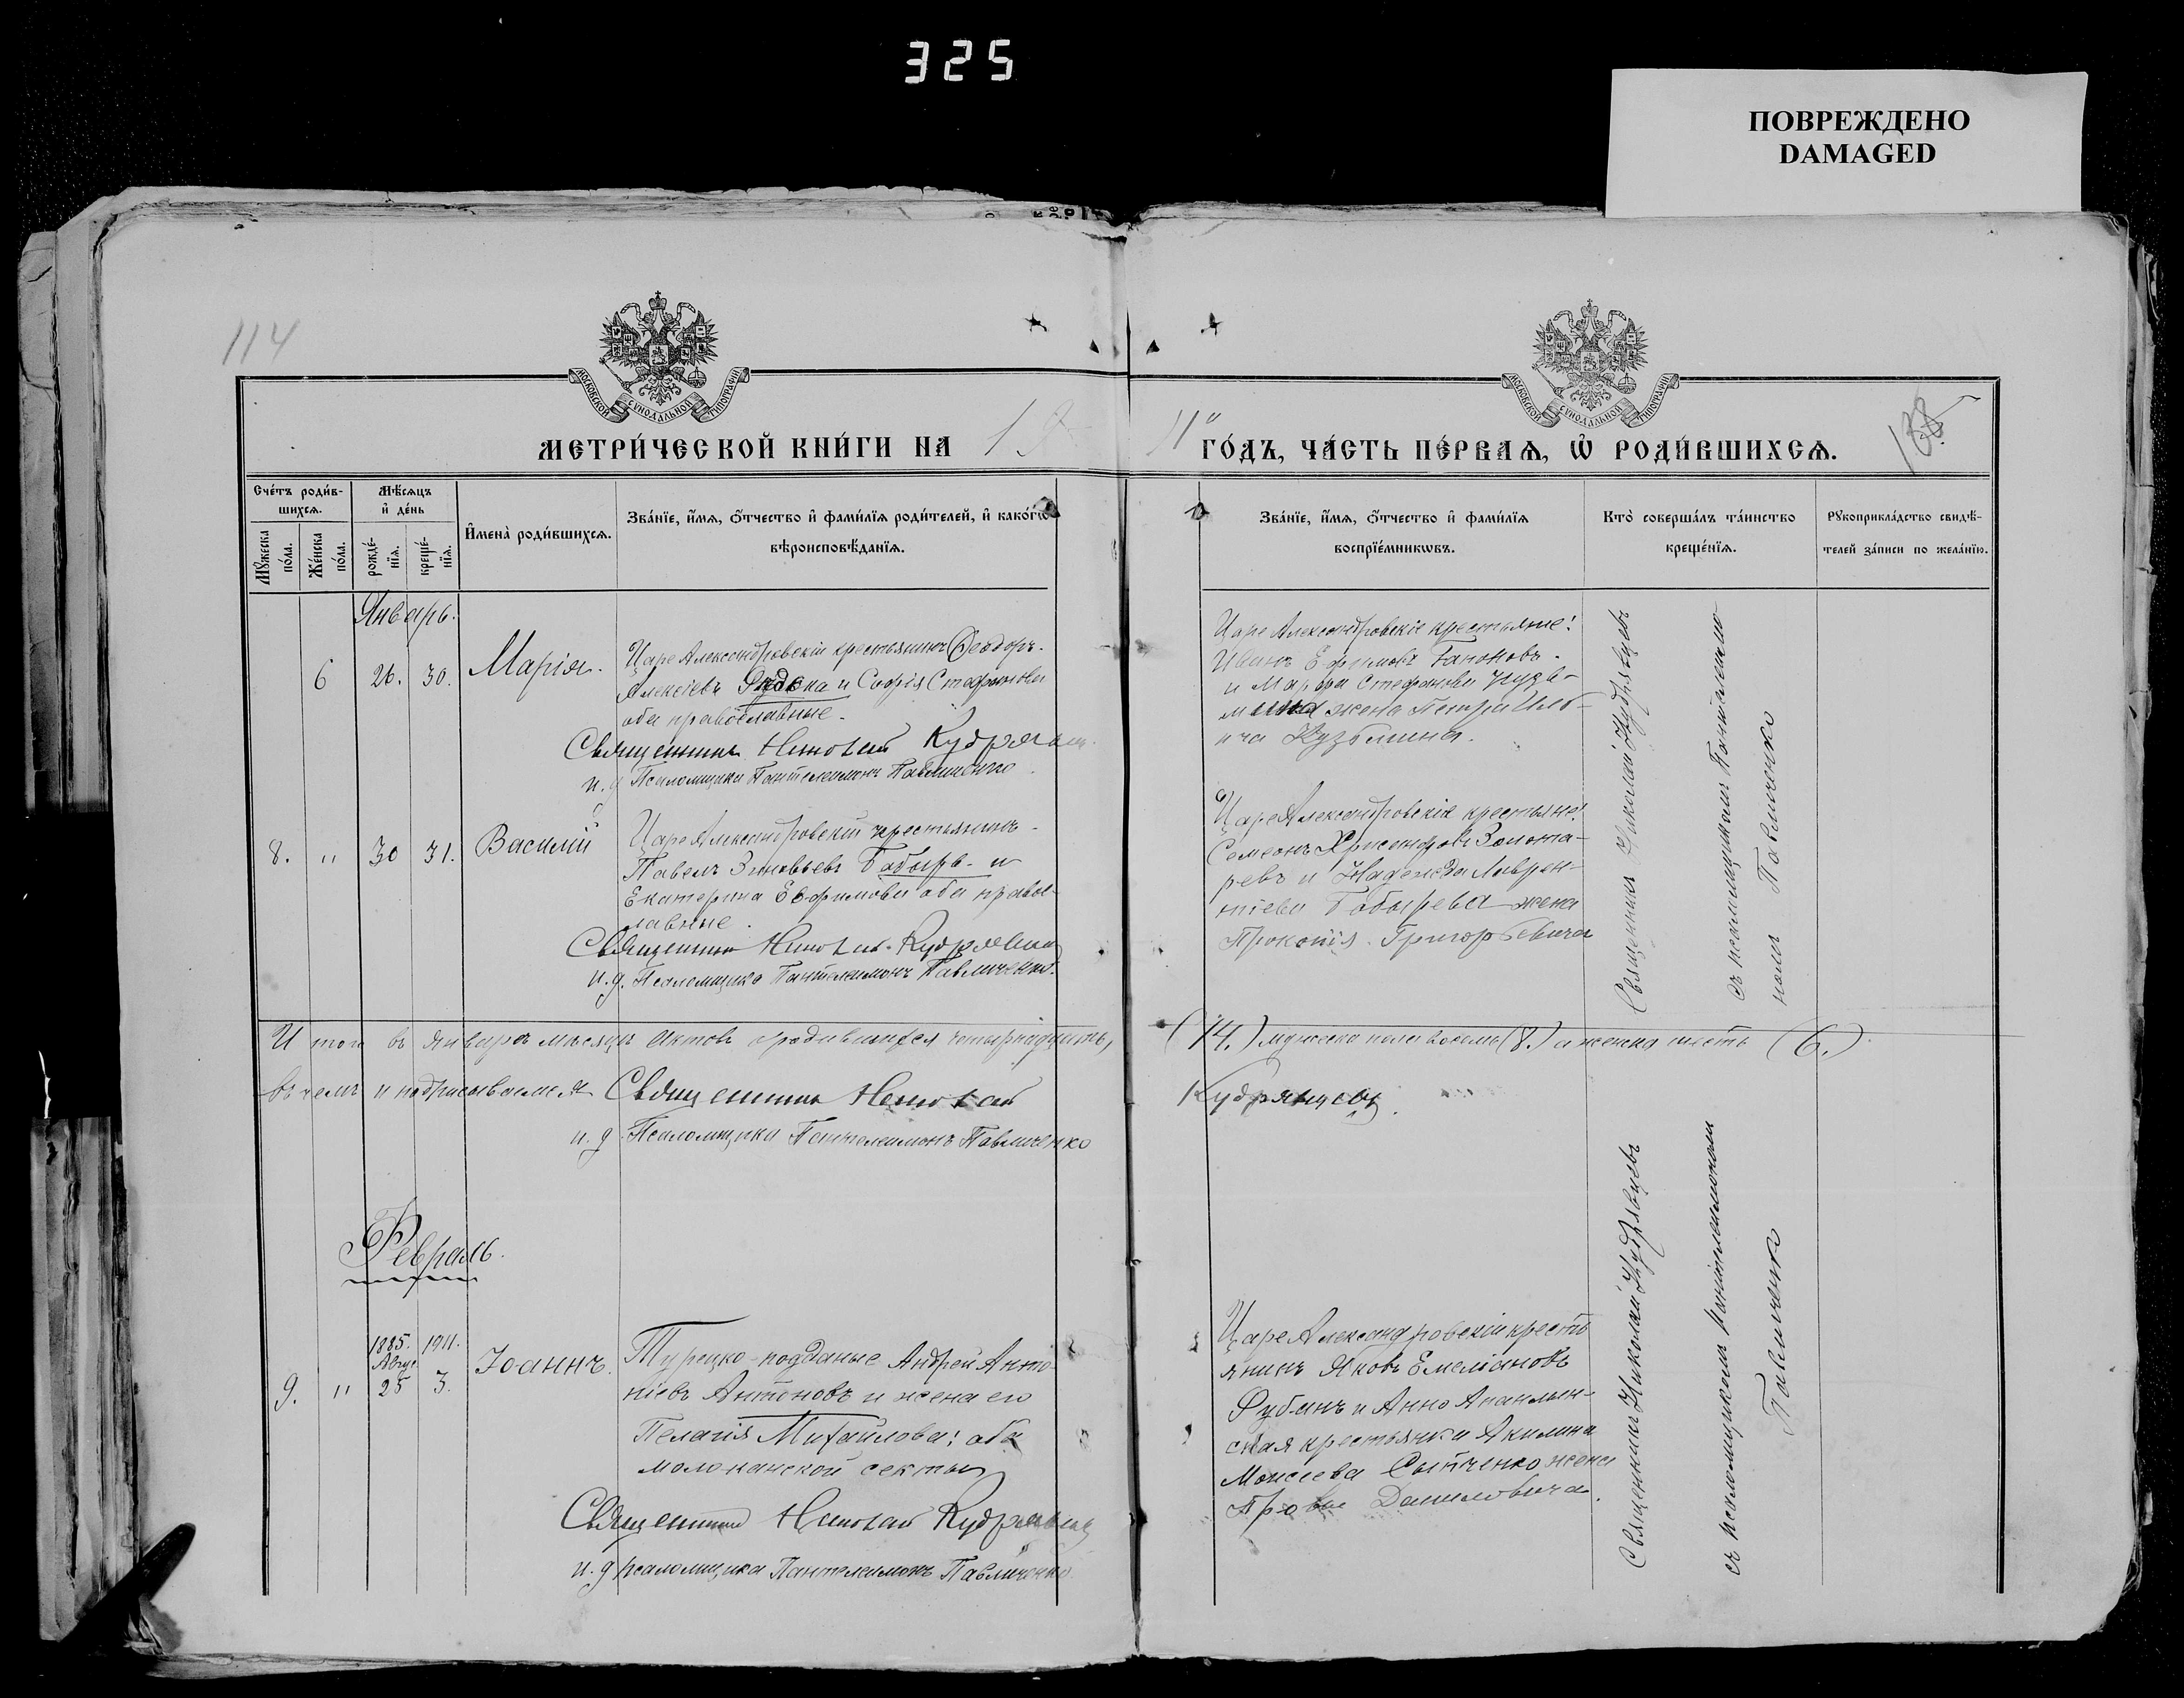 325
ПОВРЕЖДЕНО
DAMAGED
114
МОСКОВСКОЙ СѴНОДАЛЬНОЙ ТИПОГРАФІИ
МОСКОВСКОЙ СѴНОДАЛЬНОЙ ТИПОГРАФІИ
МЕТРИ́ЧЕСКОЙ КНИ́ГИ НА 19
11 ГО́ДЪ, ЧА́СТЬ ПЕ́РВАѦ, Ѡ҆ РОДИ́ВШИХСѦ.
138
Счéтъ роди́в-
шихсѧ.
Мꙋ́жеска
по́ла.
Же́нска
по́ла.
Мѣ́сѧцъ
и҆ де́нь
рожде́-
нїѧ.
креще́-
нїѧ.
И҆мена̀ роди́вшихсѧ.
Зва́нїе, и҆́мѧ, ѻ҆́тчество и҆ фами́лїѧ роди́телей, и҆ како́гѡ
вѣроисповѣ́данїѧ.
Зва́нїе, и҆́мѧ, ѻ҆́тчество и҆ фами́лїѧ
воспрїе́мникѡвъ.
Кто̀ соверша́лъ та́инство
креще́нїѧ.
Рꙋкоприкла́дство свидѣ́-
телей за́писи по жела́нїю.
Январь.
6
26. 30.
Марія.
Царе Александровскій крестьянинъ Ѳеодоръ
Алексіевъ и Софія Стефанова
оба православные.
Священникъ Николай Кудрявцевъ
и. д. Псаломщика Пантелеимонъ Павличенко
Царе Александровскіе крестьяне:
Иванъ Ефимовъ Гапоновъ
и Марѳа Стефанова Кузь-
мина жена Петра Иль-
ича Кузьмина.
8. " 30 31.
Василій
Царе Александровскій крестьянинъ
Павелъ Зиновьевъ Бабырь и
Екатерина Евфимова оба право-
славные.
Священникъ Николай Кудрявцевъ
и. д. Псаломщика Пантелеимонъ Павличенко.
Царе Александровскіе крестьяне:
Семеонъ Хрисанфовъ Золота-
ревъ и Надежда Лаврен-
тіева Бабырева жена
Прокопія Григорьевича
Священникъ Николай Кудрявцевъ
съ псаломщикомъ Пантелеимо-
номъ Павличенко
Итого въ январѣ мѣсяцѣ актовъ о родившихся четырнадцать,
(14.) мужеска пола восемь (8.) а женска шесть (6.)
въ чемъ и подписываемся Священникъ Николай
Кудрявцевъ.
и. д. Псаломщика Пантелеимонъ Павличенко
Февраль.
9. "
1885. 1911.
Авгус.
25 3.
Іоаннъ.
Турецко-подданые Андрей Анто-
ніевъ Антоновъ и жена его
Пелагія Михайлова: оба
молоканской секты
Священникъ Николай Кудрявцевъ
и. д. псаломщика Пантелеимонъ Павличенко
Царе Александровскій кресть
янинъ Яковъ Емеліановъ
и Анно
ская крестьянка Акилина
Моисеева жена
Даниловича.
Священникъ Николай Кудрявцевъ
съ псаломщикомъ Пантелеимономъ
Павличенко